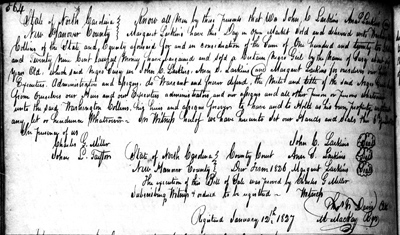 564
State of North Carolina } Know all Men by these presents that We John C. Larkins Ann S. Larkins
New Hanover County } Margaret Larkins have this Day in Open Market Sold and delivered unto
Collins of the State and County aforesaid for and in consideration of the Sum of One hundred and Seventy
and Seventy Nine Cent paid good Money have bargained and sold a Certain Negro Girl by the Name of
Years Old. which said Negro John C. Larkins Ann S. Larkins and Margaret Larkins for ourselves our
Executors Administrators and Assigns do Warrant and forever defend the Right and Title of the said Negro
from Ourselves our Heirs and our Executors administrators and our assigns and all other person or persons whatsoever
unto the said Washington Collins, his heirs and assigns forever to have and to Hold as his own property without
any let or hindrance Whatsoever. In Witness Whereof we have hereunto Set our Hands and Seals this
In presence of us
Charles G. Miller
John L. Taylor
John C. Larkins (Seal)
State of North Carolina } County Court Ann S. Larkins (Seal)
New Hanover County } 1826 Margaret Larkins (Seal)
The execution of this Bill of Sale was proved by Charles G. Miller
Subscribing Witness & ordered to be registered. Witness
Registered January 12th. 1827